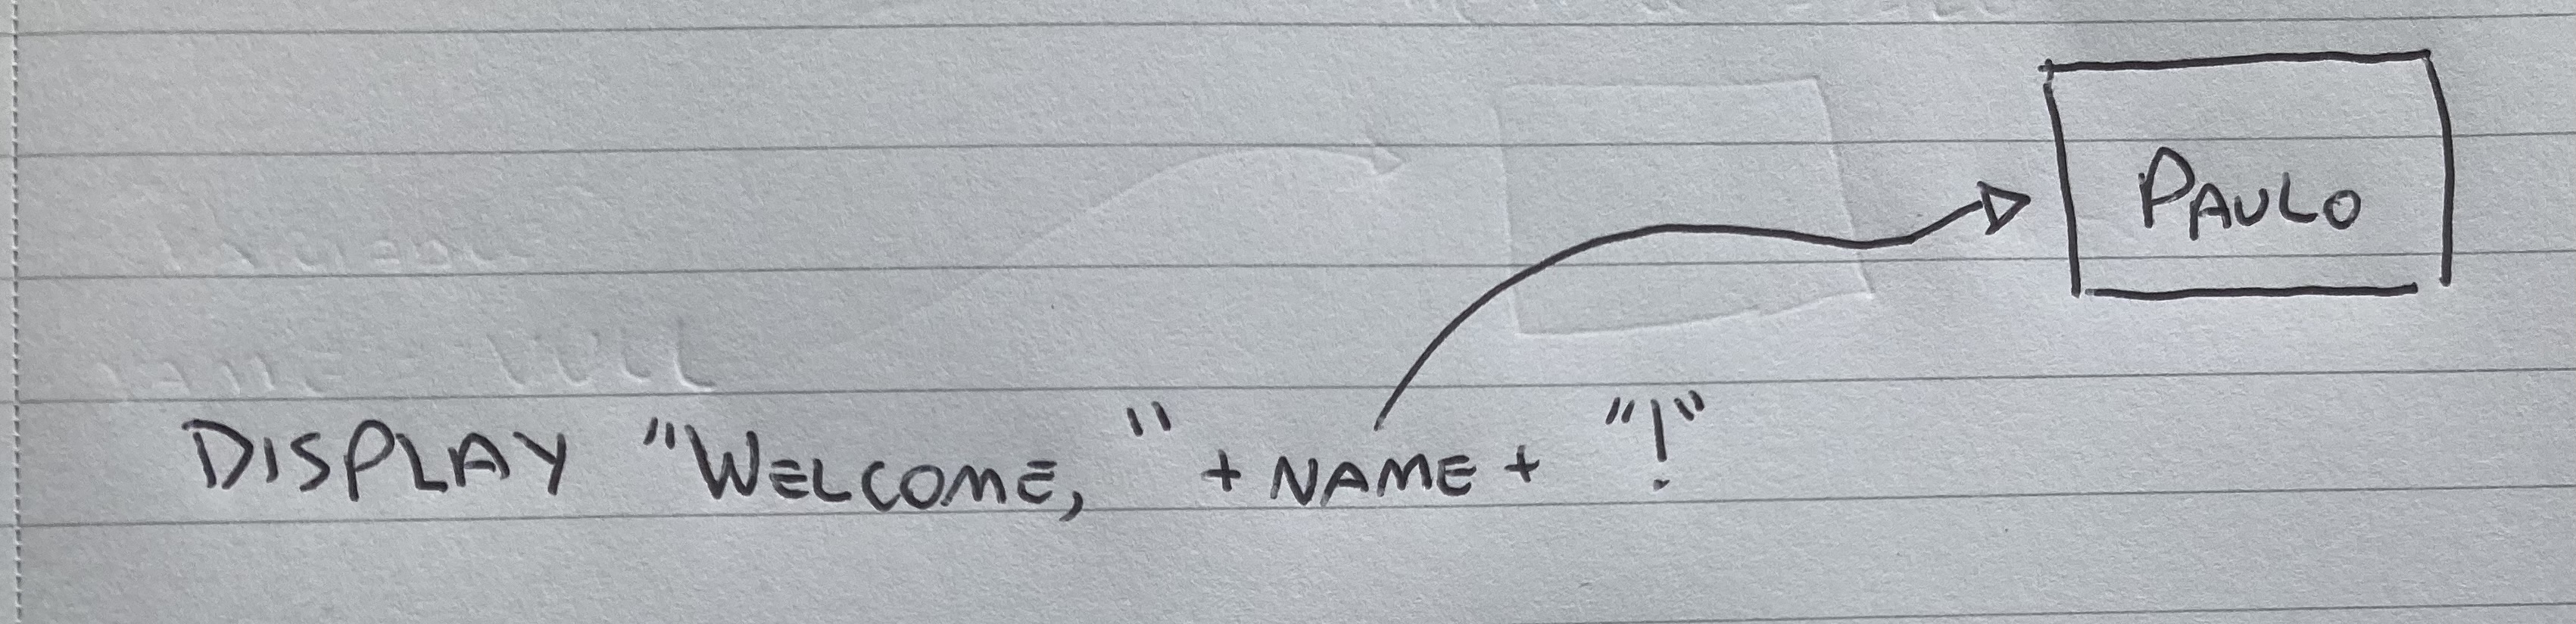 PAULO
DISPLAY "WELCOME, " + NAME + "!"